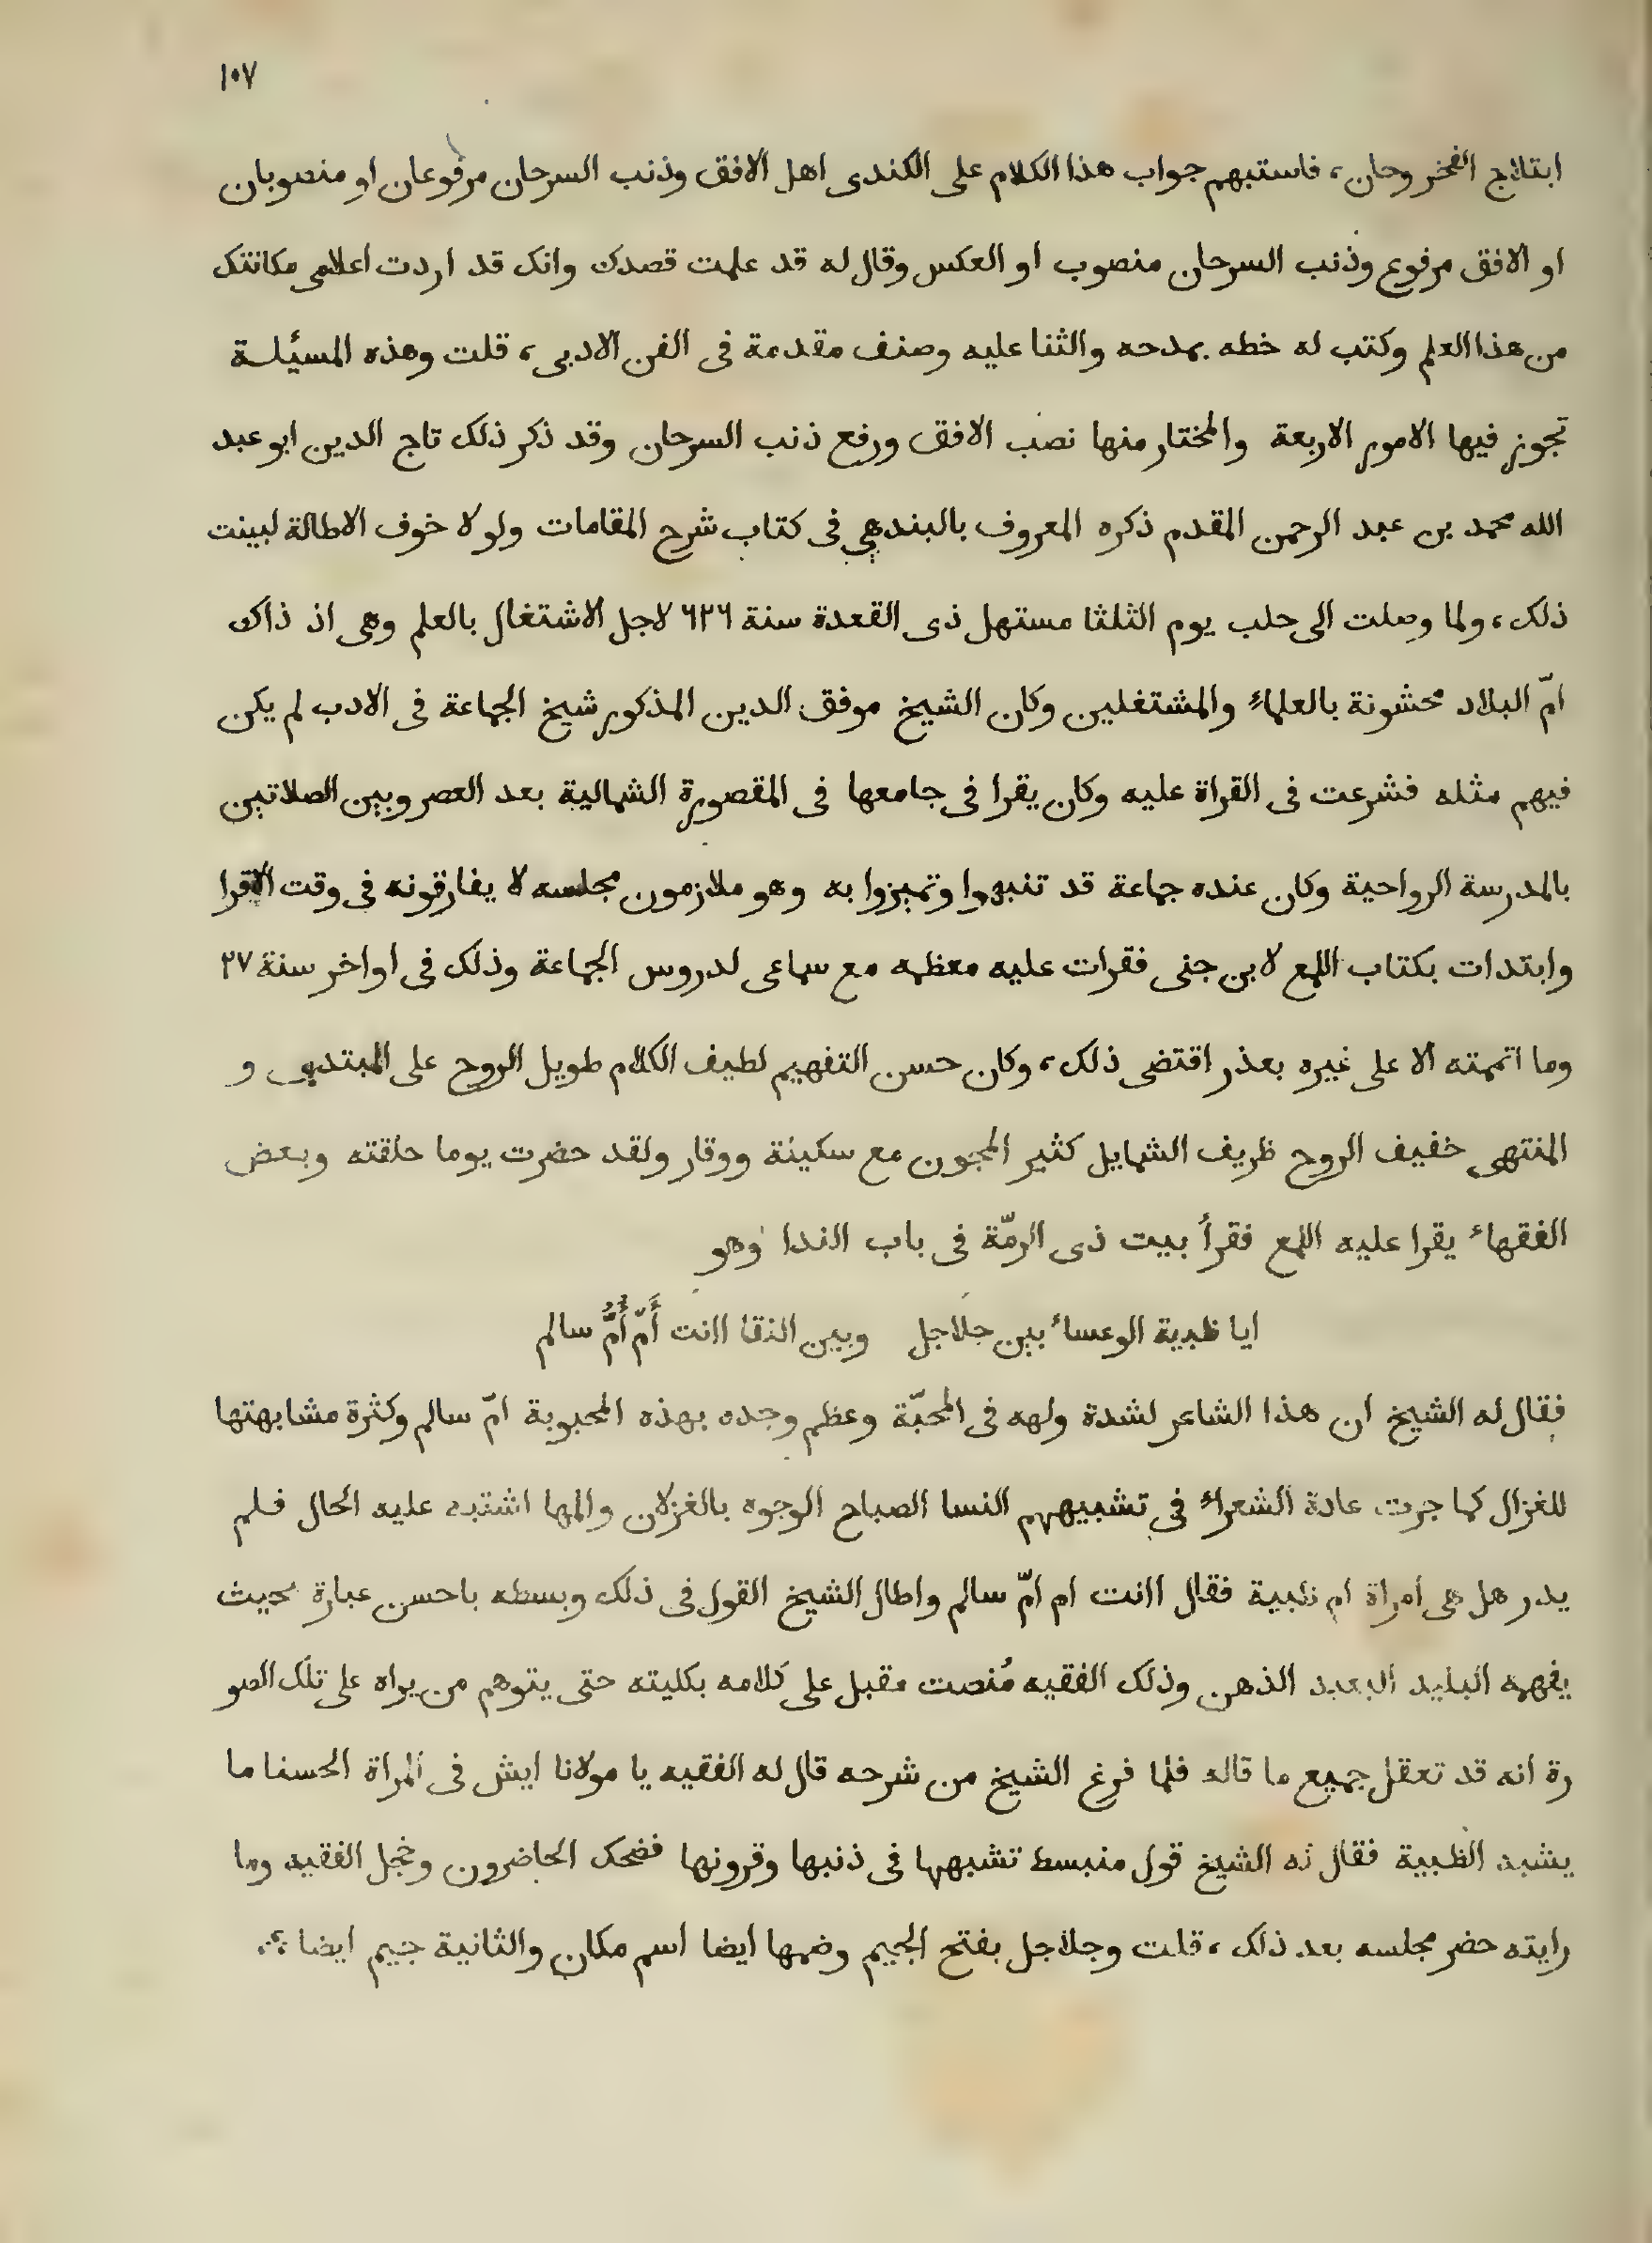 ١٠٧
ابتلاج الفخر وحان، فاستبهم جواب هذا الكلام على الكندى اهل الافق وذنب السرحان مرفوعان او منصوبان
او الافق مرفوع وذنب السرحان منصوب او العكس وقال له قد علمت قصدك وانك قد اردت اعلامى مكانتك
من هذا العلم وكتب له خطه بمدحه والثنا عليه وصنف مقدمة فى الفن الادبى، قلت وهذه المسئلة
تجوز فيها الامور الاربعة والمختار منها نصب الافق ورفع ذنب السرحان وقد ذكر ذلك تاج الدين ابو عبد
الله محمد بن عبد الرحمن المقدم ذكره المعروف بالبندهي فى كتاب شرح المقامات ولو لا خوف الاطالة لبينت
ذلك، ولما وصلت الى حلب يوم الثلثا مستهل ذى القعدة سنة ٦٢٦ لاجل الاشتغال بالعلم وهى اذ ذاك
امّ البلاد محشونة بالعلماء والمشتغلين وكان الشيخ موفق الدين المذكور شيخ الجماعة فى الادب لم يكن
فيهم مثله فشرعت فى القراة عليه وكان يقرا فى جامعها فى المقصورة الشمالية بعد العصر وبين الصلاتين
بالمدرسة الرواحية وكان عنده جماعة قد تنبهوا وتميزوا به وهو ملازمون مجلسه لا يفارقونه فى وقت الاقرا
وابتدات بكتاب اللمع لابن جنى فقرات عليه معظمه مع سماعى لدروس الجماعة وذلك فى اواخر سنة ٢٧
وما اتممته الا على غيره بعذر اقتضى ذلك، وكان حسن التفهيم لطيف الكلام طويل الروح على المبتدى و
المنتهى خفيف الروح ظريف الشمايل كثير المجون مع سكينة ووقار ولقد حضرت يوما حلقته وبعض
الفقهاء يقرا عليه اللمع فقرأ بيت ذى الرمّة فى باب الندا وهو
ايا ظبية الوعساء بين جلاجل وبين النقا اانت أمّ أُمُّ سالم
فقال له الشيخ ان هذا الشاعر لشدة ولهه فى المحبّة وعظم وجده بهذه المحبوبة امّ سالم وكثرة مشابهتها
للغزال كما جرت عادة الشعراء فى تشبيههم النسا الصباح الوجوه بالغزلان والمها اشتبه عليه الحال فلم
يدر هل هى امراة ام ظبية فقال اانت ام امّ سالم واطال الشيخ القول فى ذلك وبسطه باحسن عبارة بحيث
يفهمه البليد البعيد الذهن وذلك الفقيه مُنصت مقبل على كلامه بكليته حتى يتوهم من يراه على تلك الصو
رة انه قد تعقل جميع ما قاله فلما فرغ الشيخ من شرحه قال له الفقيه يا مولانا ايش فى المراة الحسنا ما
يشبه الظبية فقال له الشيخ قول منبسط تشبهها فى ذنبها وقرونها فضحك الحاضرون وخجل الفقيه وما
رايته حضر مجلسه بعد ذلك، قلت وجلاجل بفتح الجيم وضمها ايضا اسم مكان والثانية جيم ايضا